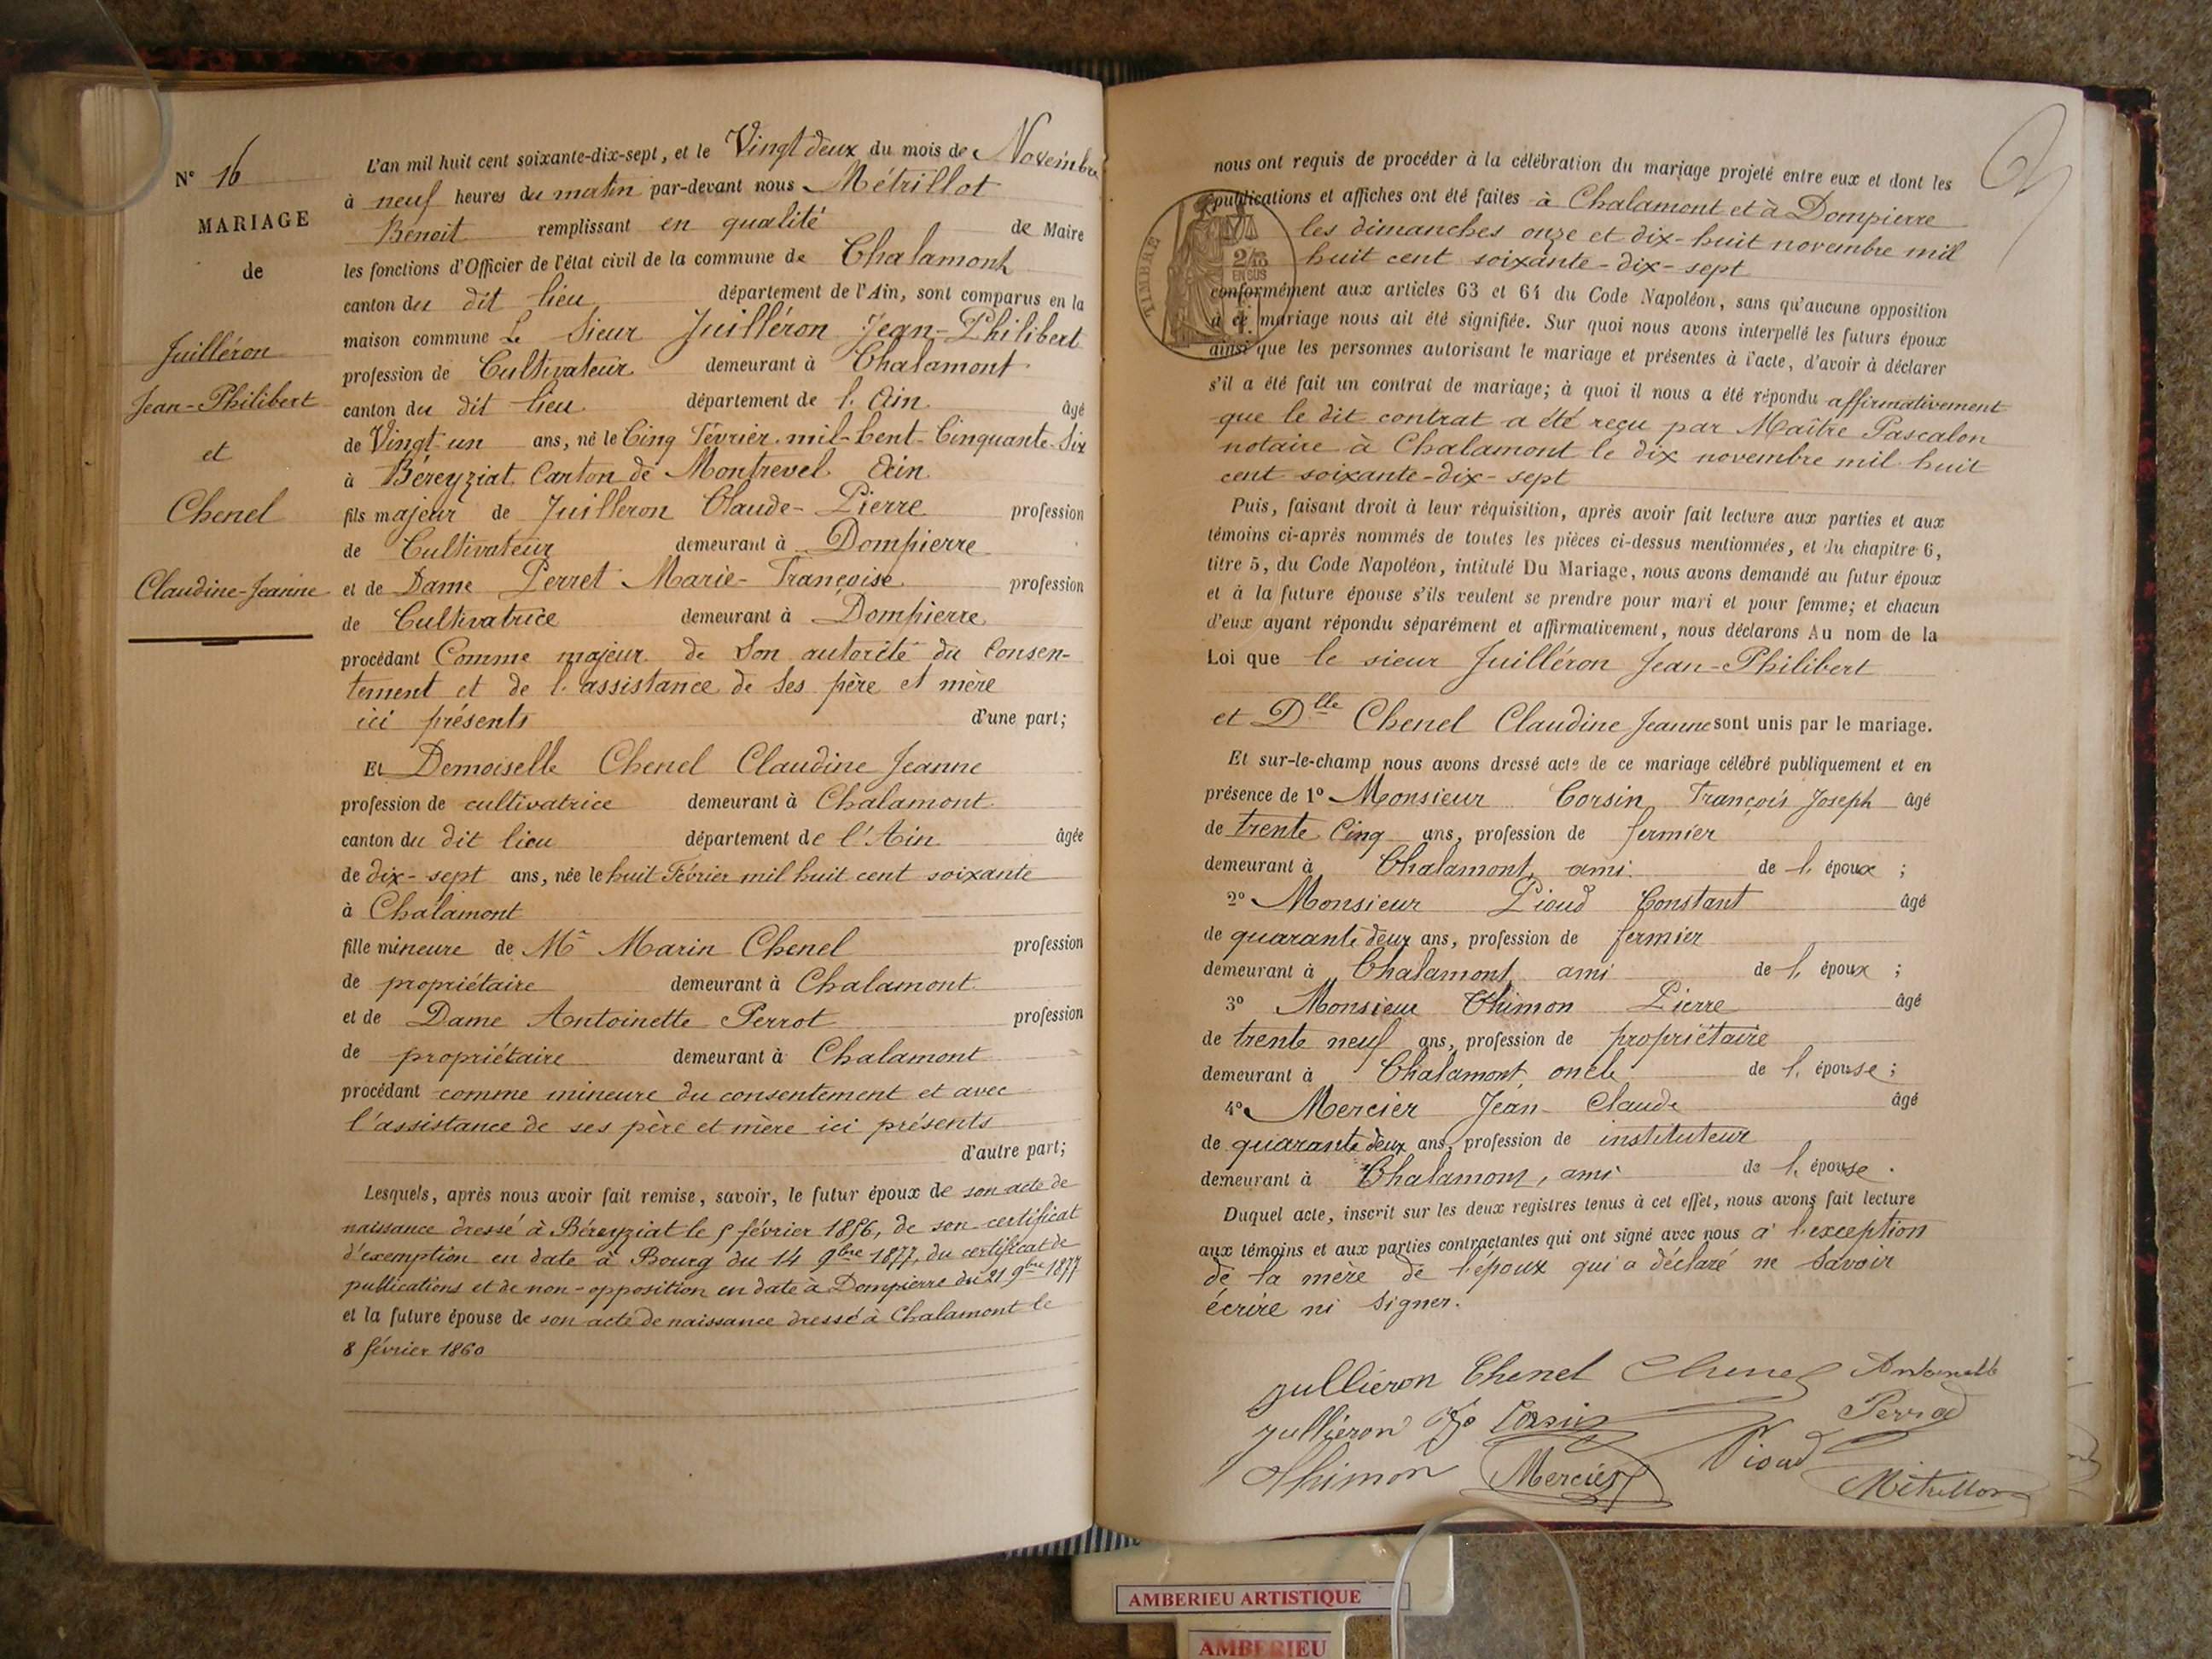 N° 16
MARIAGE
de
Juilléron
Jean-Philibert
et
Chenel
Claudine-Jeanne
L'an mil huit cent soixante-dix-sept, et le Vingt deux du mois de Novembre
à neuf heures du matin par-devant nous Métrillot
Benoit remplissant en qualité de Maire
les fonctions d'Officier de l'état civil de la commune de Chalamont
canton du dit lieu département de l'Ain, sont comparus en la
maison commune Le Sieur Juilléron Jean-Philibert
profession de Cultivateur demeurant à Chalamont
canton du dit lieu département de l'Ain âgé
de Vingt-un ans, né le Cinq Février mil-Cent-Cinquante-Six
à Béreyziat Canton de Montrevel Ain
fils majeur de Juilleron Claude-Pierre profession
de Cultivateur demeurant à Dompierre
et de Dame Perret Marie-Françoise profession
de Cultivatrice demeurant à Dompierre
procédant Comme majeur de Son autorité du Consen-
tement et de l'assistance de Ses père et mère
ici présents d'une part;
Et Demoiselle Chenel Claudine Jeanne
profession de cultivatrice demeurant à Chalamont
canton du dit lieu département de l'Ain âgée
de dix-sept ans, née le huit Février mil huit cent soixante
à Chalamont
fille mineure de Mr Marin Chenel profession
de propriétaire demeurant à Chalamont
et de Dame Antoinette Perrot profession
de propriétaire demeurant à Chalamont
procédant comme mineure du consentement et avec
l'assistance de ses père et mère ici présents
d'autre part;
Lesquels, après nous avoir fait remise, savoir, le futur époux de son acte de
naissance dressé à Béreyziat le 5 février 1856, de son certificat
d'exemption en date à Bourg du 14 9bre 1877, du certificat de
publications et de non-opposition en date à Dompierre du 21 9bre 1877
et la future épouse de son acte de naissance dressé à Chalamont le
8 février 1860
nous ont requis de procéder à la célébration du mariage projeté entre eux et dont les
publications et affiches ont été faites à Chalamont et à Dompierre
les dimanches onze et dix-huit novembre mil
huit cent soixante-dix-sept
conformément aux articles 63 et 64 du Code Napoléon, sans qu'aucune opposition
à ce mariage nous ait été signifiée. Sur quoi nous avons interpellé les futurs époux
ainsi que les personnes autorisant le mariage et présentes à l'acte, d'avoir à déclarer
s'il a été fait un contrat de mariage; à quoi il nous a été répondu affirmativement
que le dit contrat a été reçu par Maître Pascalon
notaire à Chalamont le dix novembre mil huit
cent soixante-dix-sept
TIMBRE
2/10
EN SUS
Puis, faisant droit à leur réquisition, après avoir fait lecture aux parties et aux
témoins ci-après nommés de toutes les pièces ci-dessus mentionnées, et du chapitre 6,
titre 5, du Code Napoléon, intitulé Du Mariage, nous avons demandé au futur époux
et à la future épouse s'ils veulent se prendre pour mari et pour femme; et chacun
d'eux ayant répondu séparément et affirmativement, nous déclarons Au nom de la
Loi que le sieur Juilléron Jean-Philibert
et Dlle Chenel Claudine Jeanne sont unis par le mariage.
Et sur-le-champ nous avons dressé acte de ce mariage célébré publiquement et en
présence de 1° Monsieur Corsin François Joseph âgé
de trente Cinq ans, profession de fermier
demeurant à Chalamont, ami de l'époux ;
2° Monsieur Pioud Constant âgé
de quarante deux ans, profession de fermier
demeurant à Chalamont ami de l'époux ;
3° Monsieur Thimon Pierre âgé
de trente neuf ans, profession de propriétaire
demeurant à Chalamont, oncle de l'épouse ;
4° Mercier Jean Claude âgé
de quarante deux ans, profession de instituteur
demeurant à Chalamont, ami de l'épouse .
Duquel acte, inscrit sur les deux registres tenus à cet effet, nous avons fait lecture
aux témoins et aux parties contractantes qui ont signé avec nous à l'exception
de la mère de l'époux qui a déclaré ne Savoir
écrire ni Signer.
jullieron Chenel Chenel Antoinette
jullieron Corsin Perrod
Thimon Mercier Pioud Métrillot
AMBERIEU ARTISTIQUE
AMBERIEU